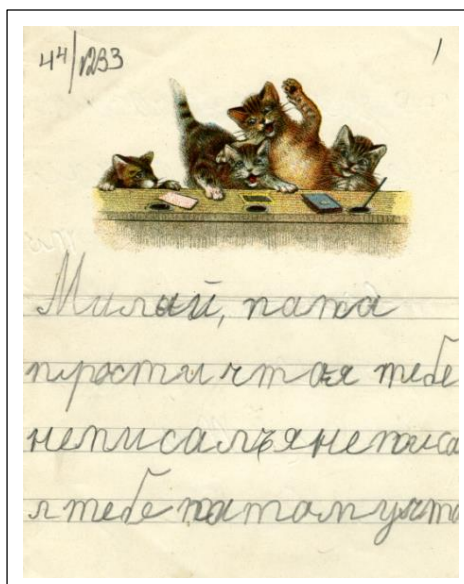 44/1233
1
Милый, папа
прости что я тебе
неписалъ я неписа
л тебе потому что